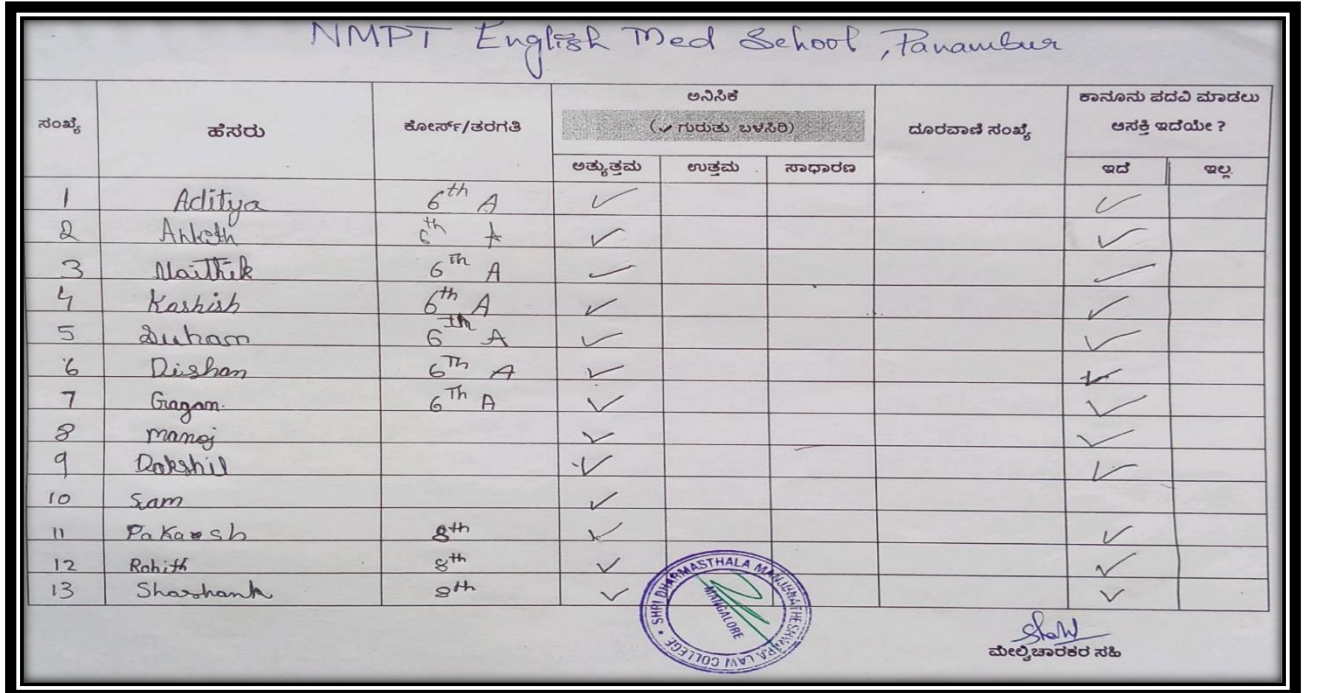 NMPT English Med School, Panambur
ಸಂಖ್ಯೆ ಹೆಸರು ಕೋರ್ಸ್/ತರಗತಿ ಅನಿಸಿಕೆ (✓ ಗುರುತು ಬಳಸಿರಿ) ದೂರವಾಣಿ ಸಂಖ್ಯೆ ಕಾನೂನು ಪದವಿ ಮಾಡಲು ಆಸಕ್ತಿ ಇದೆಯೇ ?
ಅತ್ಯುತ್ತಮ ಉತ್ತಮ ಸಾಧಾರಣ ಇದೆ ಇಲ್ಲ
1 Aditya 6th A ✓ ✓
2 Ankoth 6th A ✓ ✓
3 Maithik 6th A ✓ ✓
4 Kashish 6th A ✓ ✓
5 Suham 6th A ✓ ✓
6 Dishan 6Th A ✓ ✓
7 Gagan 6Th A ✓ ✓
8 manoj ✓ ✓
9 Dakshil ✓ ✓
10 Sam ✓
11 8th ✓ ✓
12 Rohith 8th ✓ ✓
13 Shashank 8th ✓ ✓
SHRI DHARMASTHALA MANJUNATHESHWARA LAW COLLEGE
MANGALORE
ಮೇಲ್ವಿಚಾರಕರ ಸಹಿ